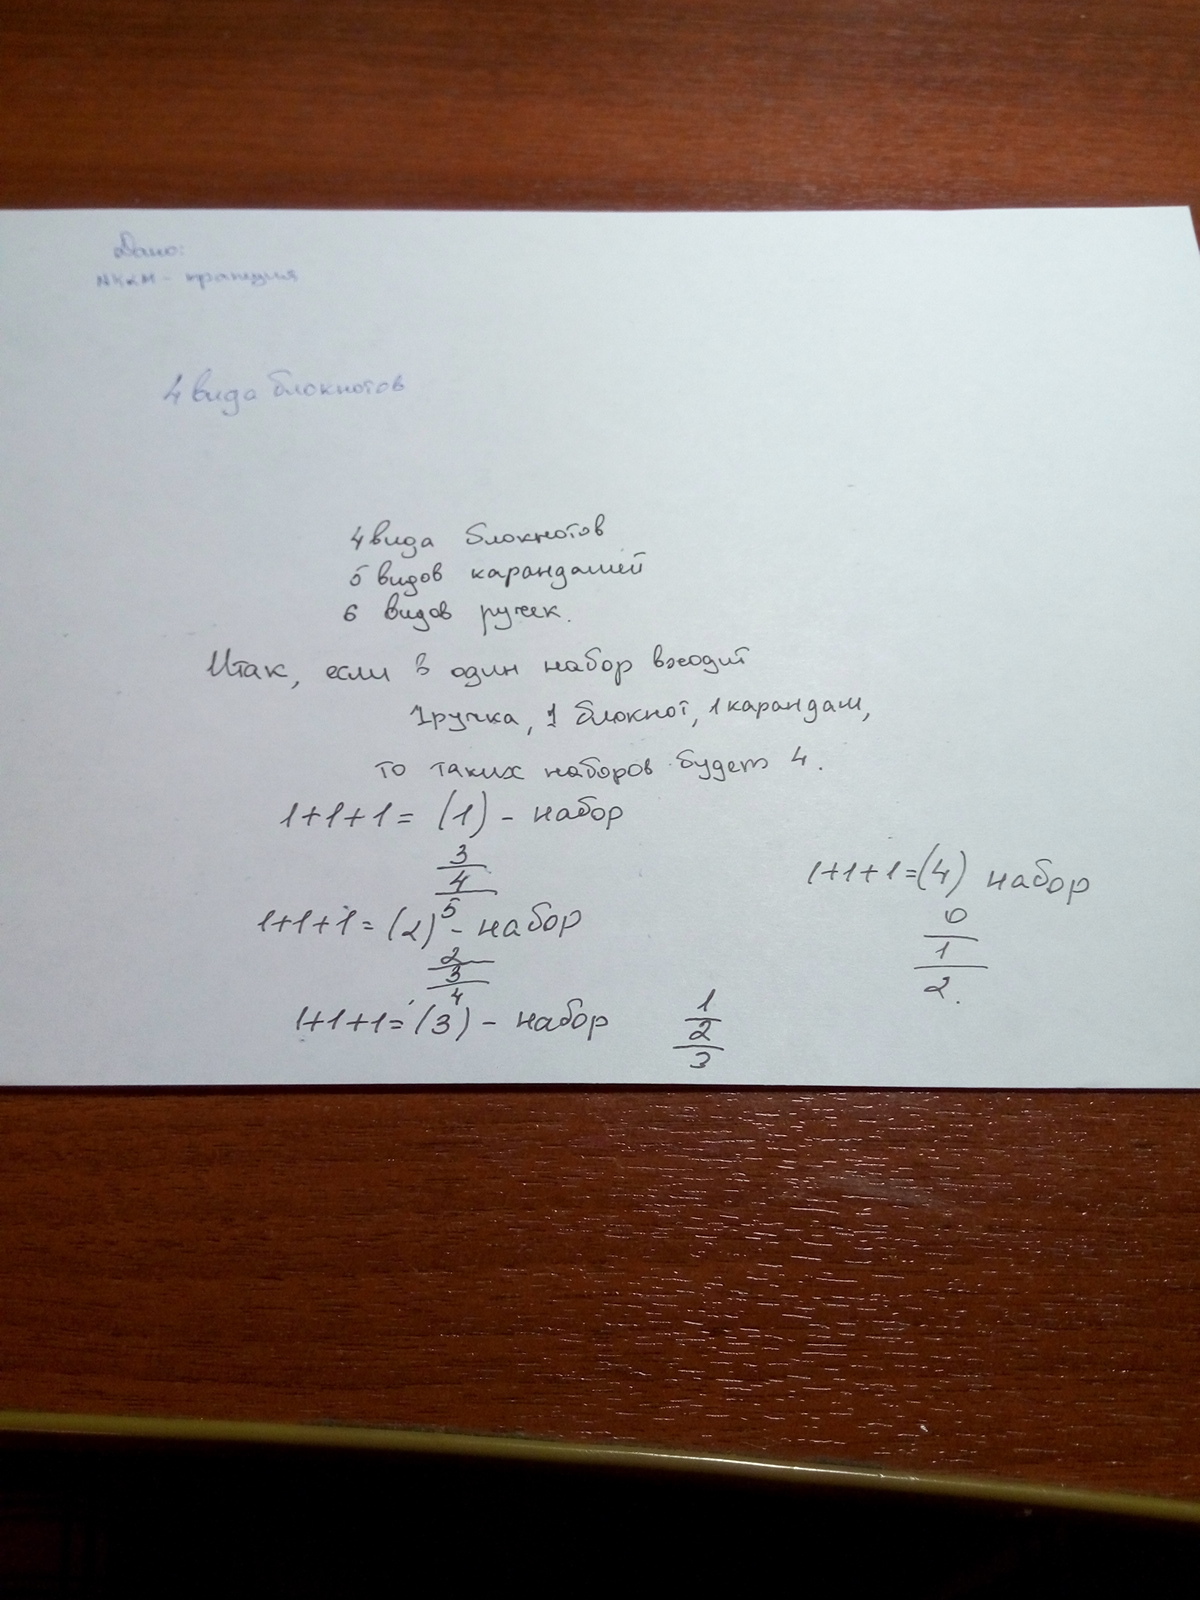 Дано:
трапеция
4 вида блокнотов
4 вида блокнотов
5 видов карандашей
6 видов ручек.
Итак, если в один набор входит
1 ручка, 1 блокнот, 1 карандаш,
то таких наборов будет 4.
1+1+1= (1) - набор
3
4
5
1+1+1= (2) - набор
2
3
4
1+1+1= (3) - набор
1
2
3
1+1+1=(4) набор
0
1
2.